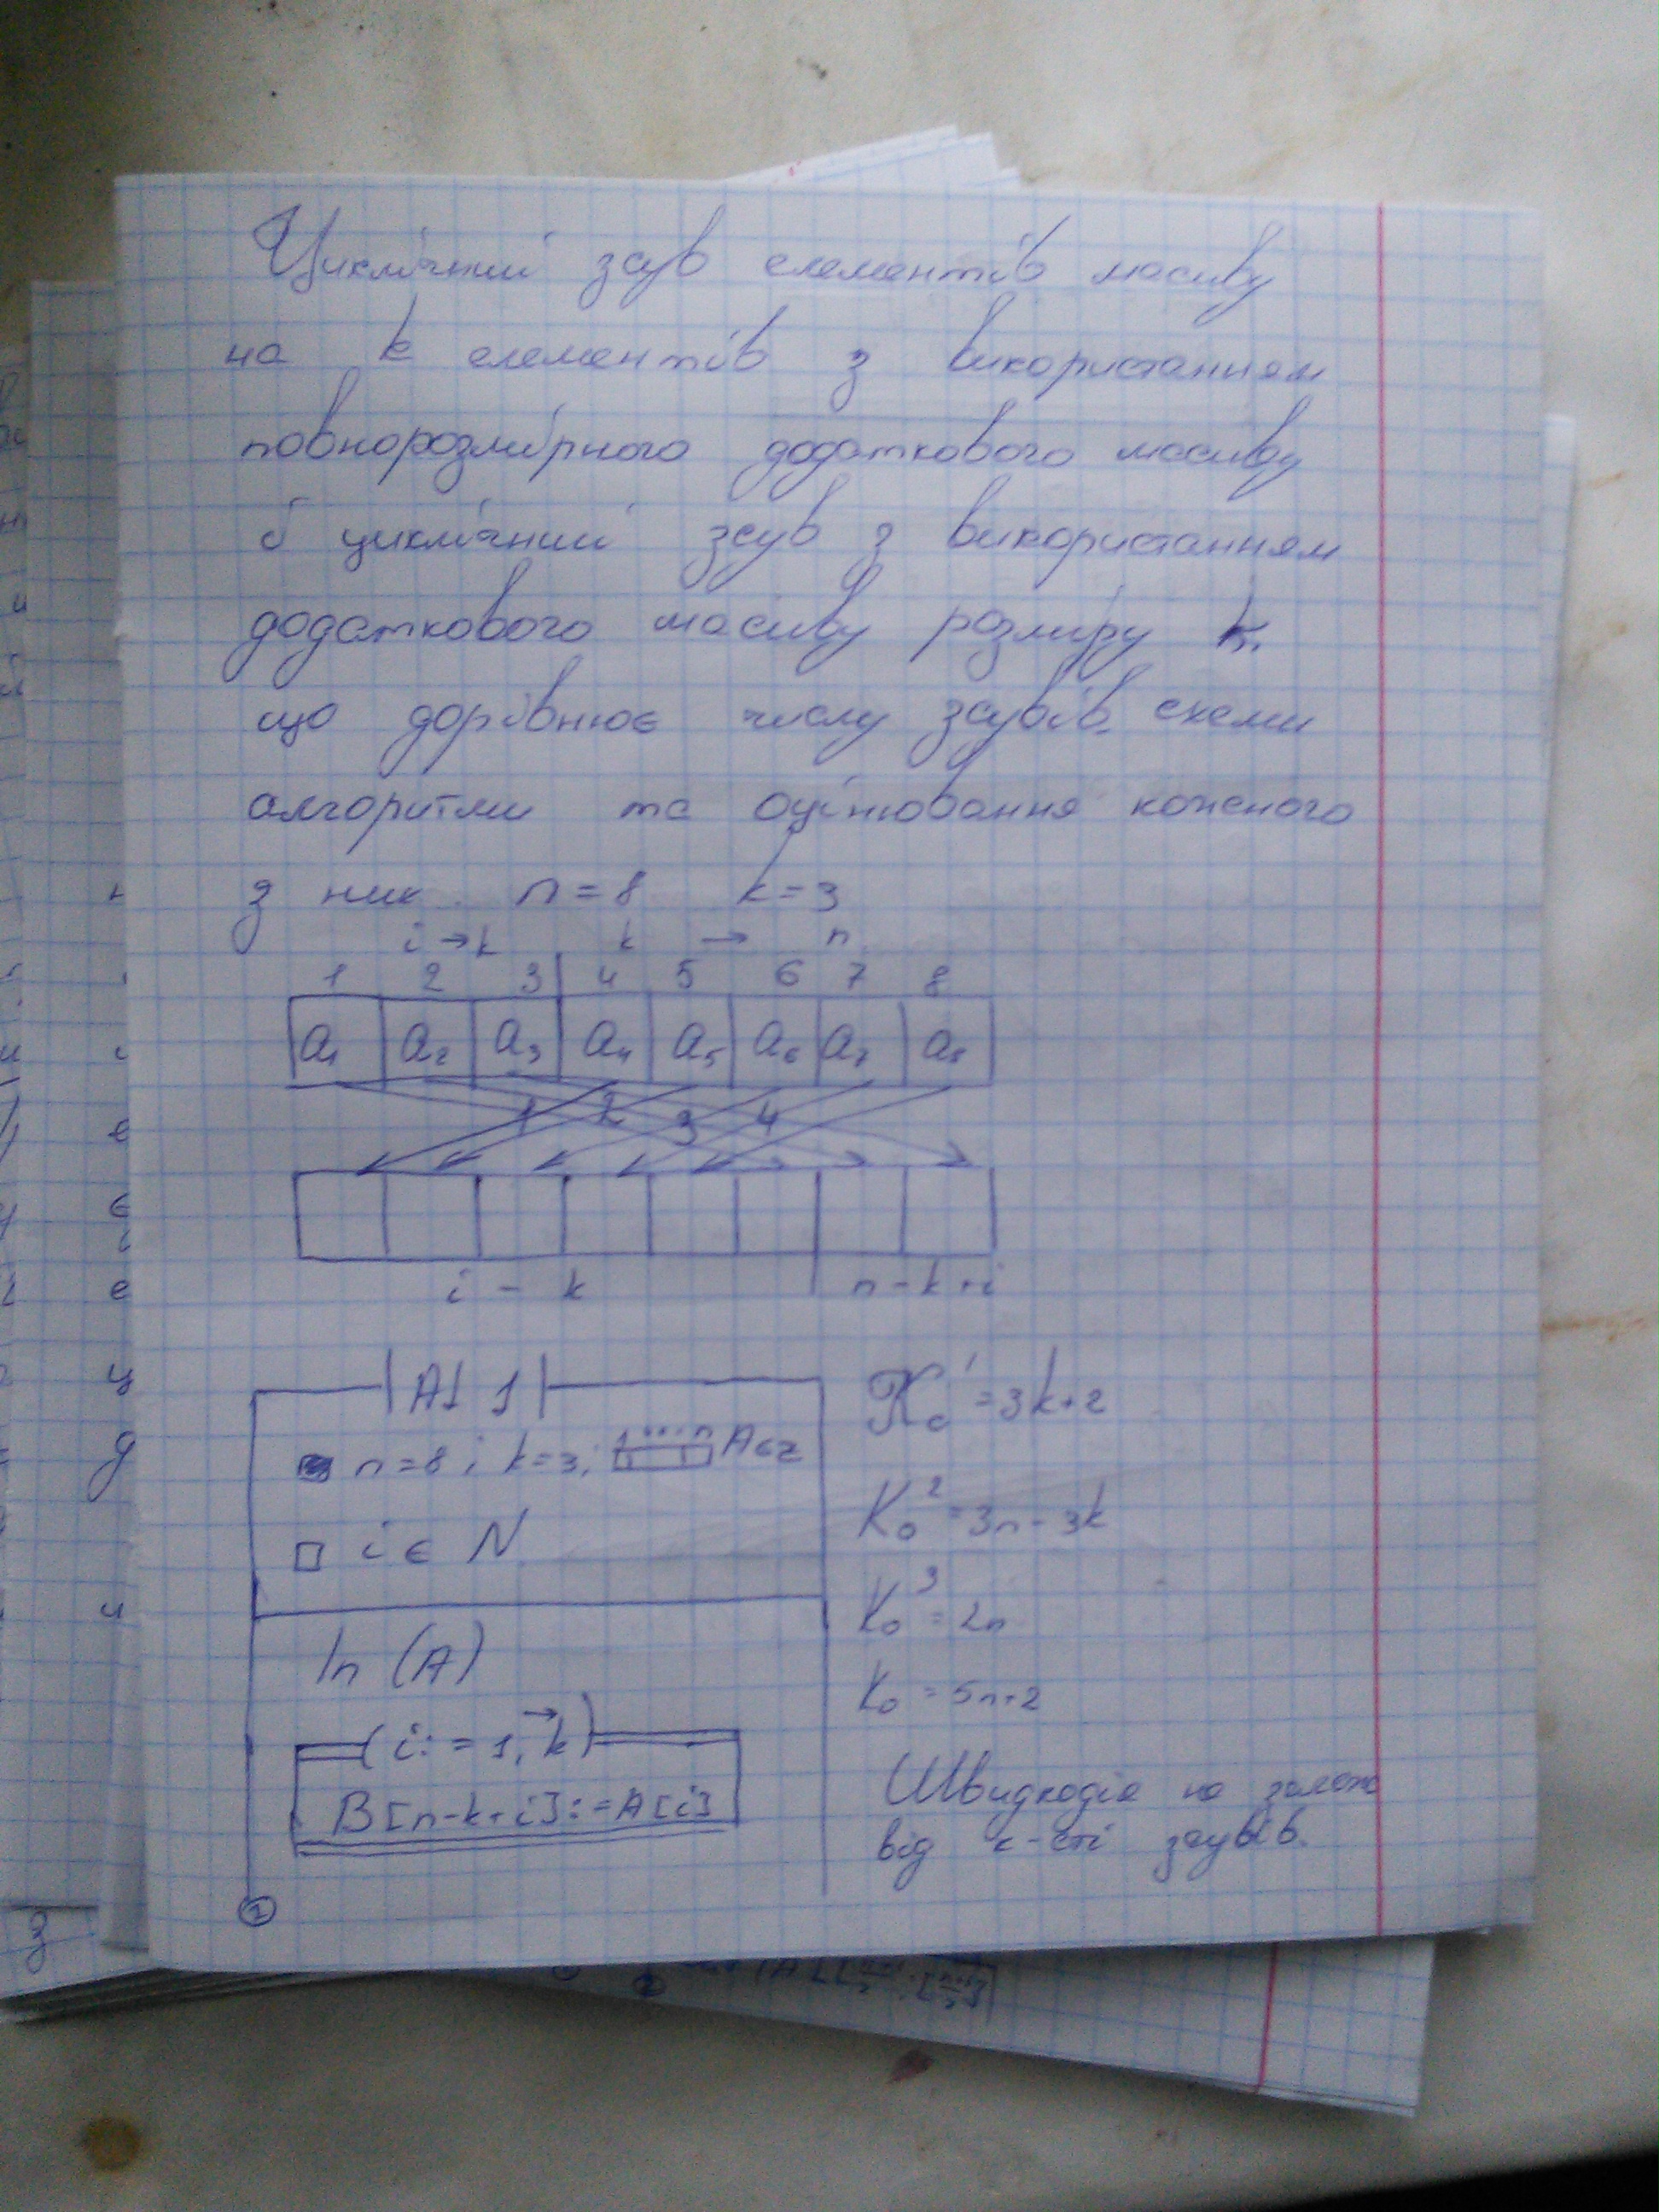 Циклічний зсув елементів масиву
на k елементів з використанням
повнорозмірного додаткового масиву
і циклічний зсув з використанням
додаткового масиву розміру k,
що дорівнює числу зсувів. схеми
алгоритми та оцінювання кожного
з них. n=8 k=3
i→k k → n
1 2 3 4 5 6 7 8
a1 a2 a3 a4 a5 a6 a7 a8
1 2 3 4
i - k n-k+i
A1 1
n=8; k=3; 1...n A∈Z
i ∈ N
In (A)
(i:=1,k)
B[n-k+i]:=A[i]
1
K₀¹=3k+2
K₀²=3n-3k
K₀³=2n
K₀=5n+2
Швидкодія не залеж
від к-сті зсувів.
З